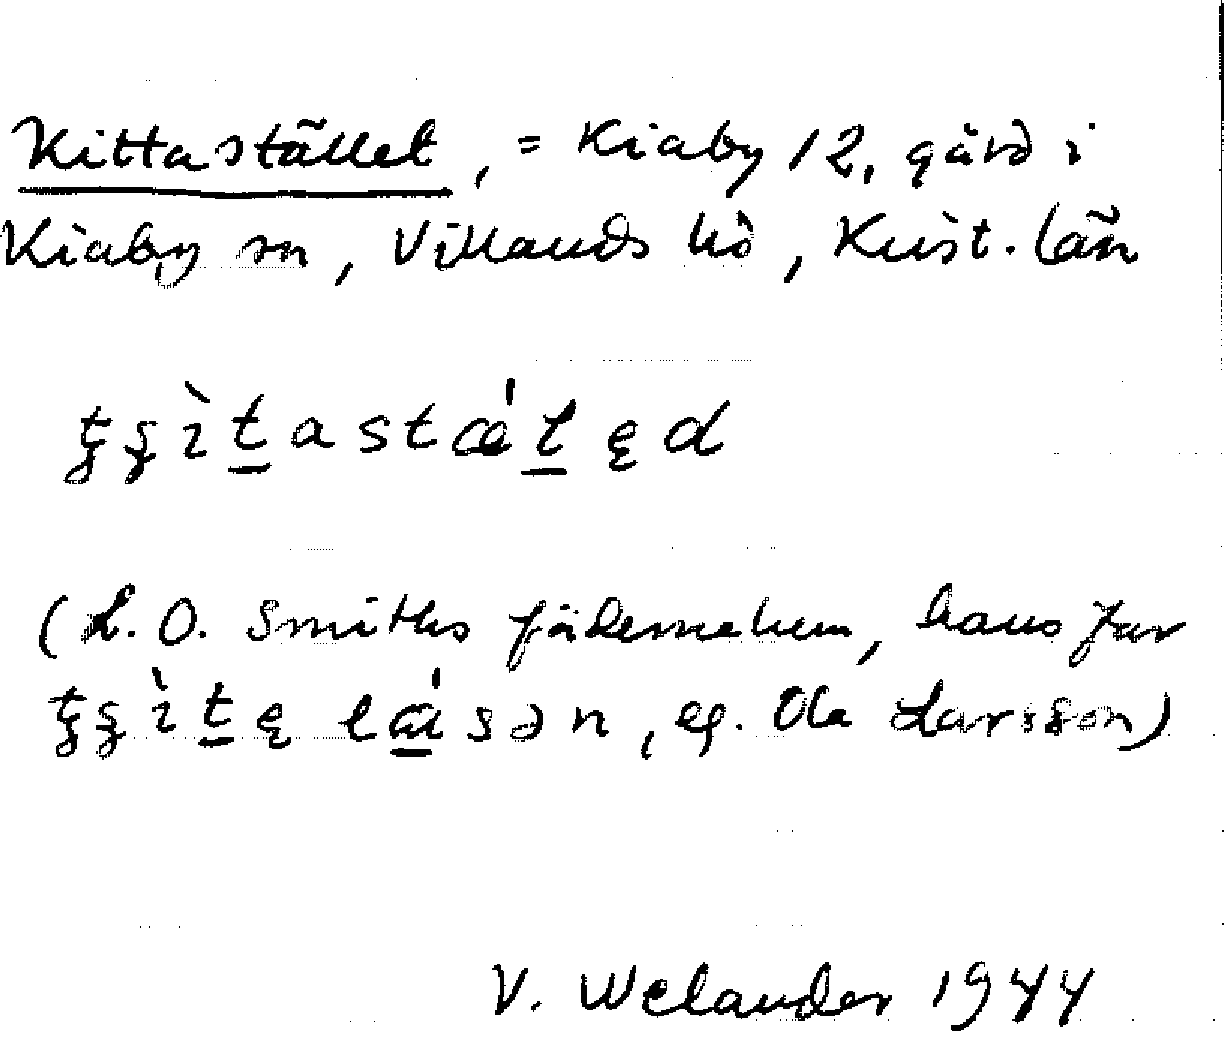 Kittastället, = Kiaby 12, gård i
Kiaby sn, Villands hd, Krist. län
ìt̲astǽl̲ęd
(L. O. Smiths fädernehem, hans far
ìt̲ę lǽ̲sən, eg. Ola Larsson)
V. Welander 1944